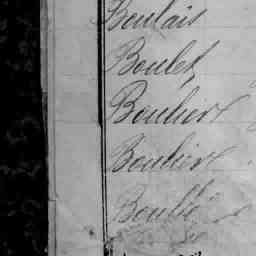 Boulais
Boulet
Bouliert
Boulier
Boulié